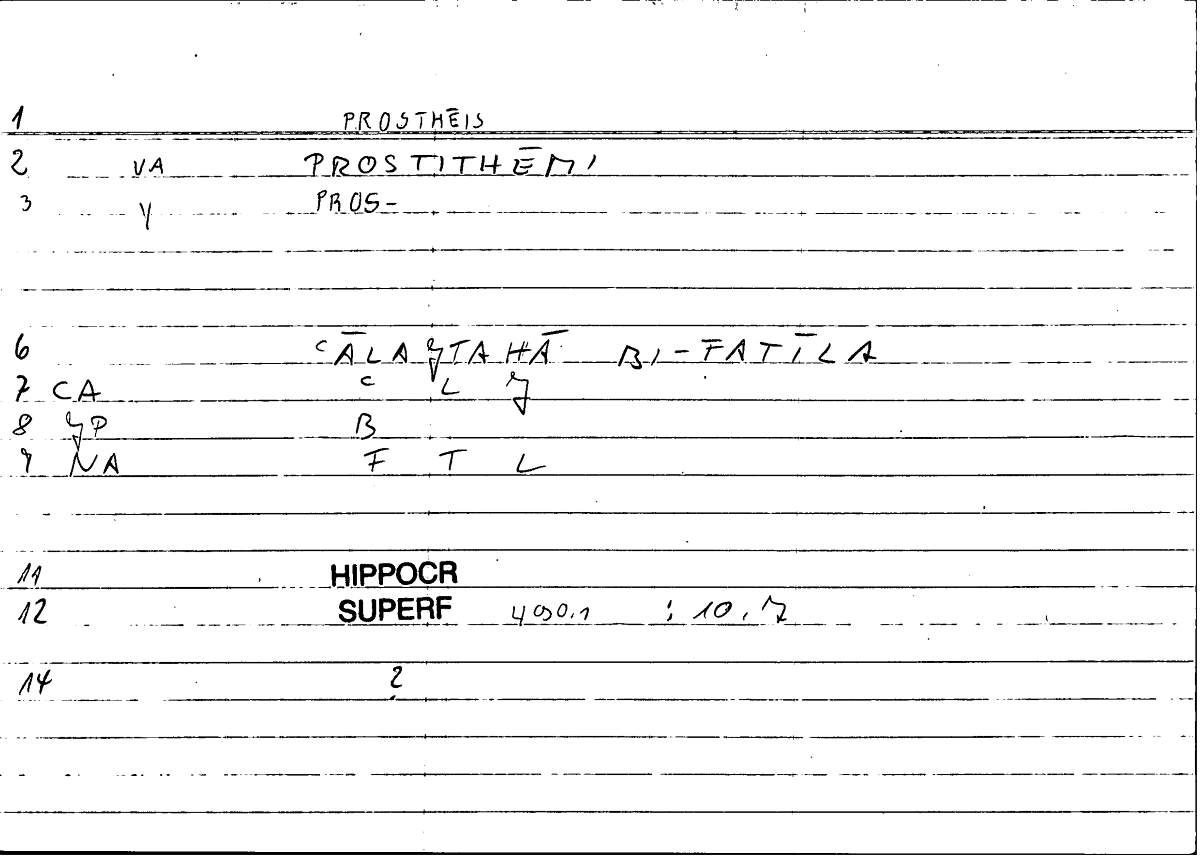 1 PROSTHĒIS
2 VA PROSTITHĒMI
3 Y PROS-
6 cĀLAYTAHĀ BI-FATĪLA
7 CA c L Y
8 YP B
9 NA F T L
11 HIPPOCR
12 SUPERF 490.1 : 10.7
14 2